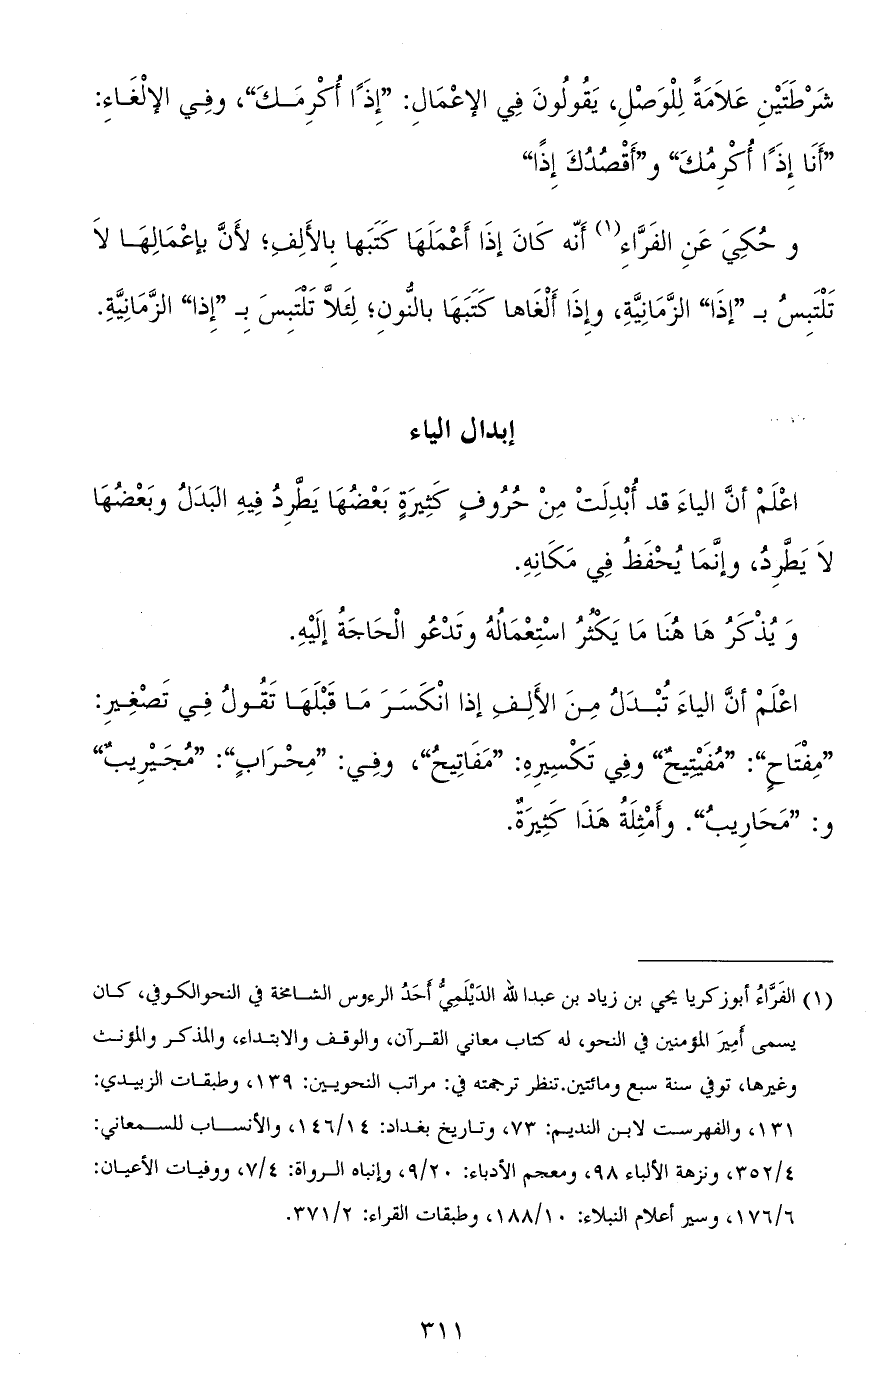 شَرْطَتَيْنِ عَلاَمَةً لِلْوَصْلِ، يَقُولُونَ فِي الإعْمَالِ: ”إِذًا أُكْرِمَـكَ“، وفِـي الإلْغَـاءِ:
”أَنَا إِذًا أُكْرِمُكَ“ و”أَقْصُدُكَ إِذًا“
و حُكِيَ عَنِ الفَرَّاءِ(١) أَنّه كَانَ إِذَا أَعْمَلَهَا كَتَبَها بِالأَلِفِ؛ لأنَّ بإعْمَالِهَـا لاَ
تَلْتَبِسُ بـ ”إِذَا“ الزَّمَانِيَّةِ، وإِذَا أَلْغَاها كَتَبَهَا بالنُّونِ؛ لِئَلاَّ تَلْتَبِسَ بِـ ”إِذا“ الزَّمَانِيَّةِ.
إبدال الياء
اعْلَمْ أنَّ الياءَ قد أُبْدِلَتْ مِنْ حُرُوفٍ كَثِيرَةٍ بَعْضُهَا يَطَّرِدُ فِيهِ البَدَلُ وبَعْضُهَا
لاَ يَطَّرِدُ، وإِنَّمَا يُحْفَظُ فِي مَكَانِهِ.
وَ يُذْكَرُ هَا هُنَا مَا يَكْثُرُ اسْتِعْمَالُهُ وتَدْعُو الْحَاجَةُ إِلَيْهِ.
اعْلَمْ أنَّ الياءَ تُبْـدَلُ مِـنَ الأَلِـفِ إذا انْكَسَـرَ مَـا قَبْلَهَـا تَقُـولُ فِـي تَصْغِـيرِ:
”مِفْتَاحٍ“: ”مُفَيْتِيحٌ“ وفِي تَكْسِيرِهِ: ”مَفَاتِيحُ“، وفِـي: ”مِحْـرَابٍ“: ”مُحَـيْرِيبٌ“
و: ”مَحَارِيبُ“. وأَمْثِلَةُ هَذَا كَثِيرَةٌ.
(١) الفَرَّاءُ أبوزكريا يحي بن زياد بن عبدالله الدَيْلَمِيُّ أَحَدُ الرءوس الشامخة في النحوالكوفي، كـان
يسمى أَمِيرَ المؤمنين في النحو، له كتاب معاني القـرآن، والوقـف والابتـداء، والمذكـر والمؤنـث
وغيرها، توفي سنة سبع ومائتين.تنظر ترجمته في: مراتب النحويـين: ١٣٩، وطبقـات الزبيـدي:
١٣١، والفهرسـت لابـن النديـم: ٧٣، وتـاريخ بغـداد: ١٤٦/١٤، والأنسـاب للسـمعاني:
٣٥٢/٤، ونزهة الألباء ٩٨، ومعجم الأدباء: ٩/٢٠، وإنباه الـرواة: ٧/٤، ووفيـات الأعيـان:
١٧٦/٦، وسير أعلام النبلاء: ١٨٨/١٠، وطبقات القراء: ٣٧١/٢.
٣١١